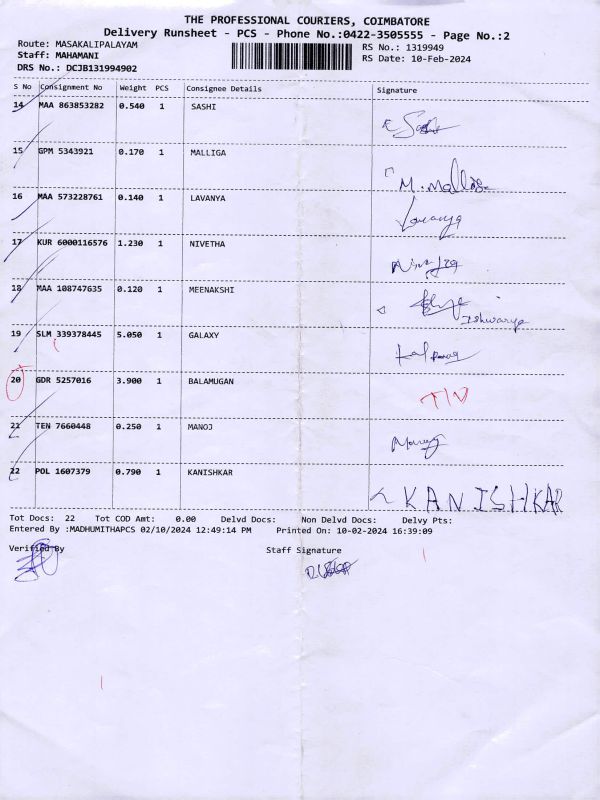 THE PROFESSIONAL COURIERS, COIMBATORE
Delivery Runsheet - PCS - Phone No.:0422-3505555 - Page No.:2
Route: MASAKALIPALAYAM
RS No.: 1319949
Staff: MAHAMANI
RS Date: 10-Feb-2024
DRS No.: DCJB131994902
S No Consignment No Weight PCS Consignee Details Signature
14 MAA 863853282 0.540 1 SASHI
15 GPM 5343921 0.170 1 MALLIGA M. Malliga
16 MAA 573228761 0.140 1 LAVANYA Lavanya
17 KUR 6000116576 1.230 1 NIVETHA
18 MAA 108747635 0.120 1 MEENAKSHI Ishwarya
19 SLM 339378445 5.050 1 GALAXY
20 GDR 5257016 3.900 1 BALAMUGAN
21 TEN 7660448 0.250 1 MANOJ Manoj
22 POL 1607379 0.790 1 KANISHKAR KANISHKAR
Tot Docs: 22 Tot COD Amt: 0.00 Delvd Docs: Non Delvd Docs: Delvy Pts:
Entered By :MADHUMITHAPCS 02/10/2024 12:49:14 PM Printed On: 10-02-2024 16:39:09
Verified By Staff Signature